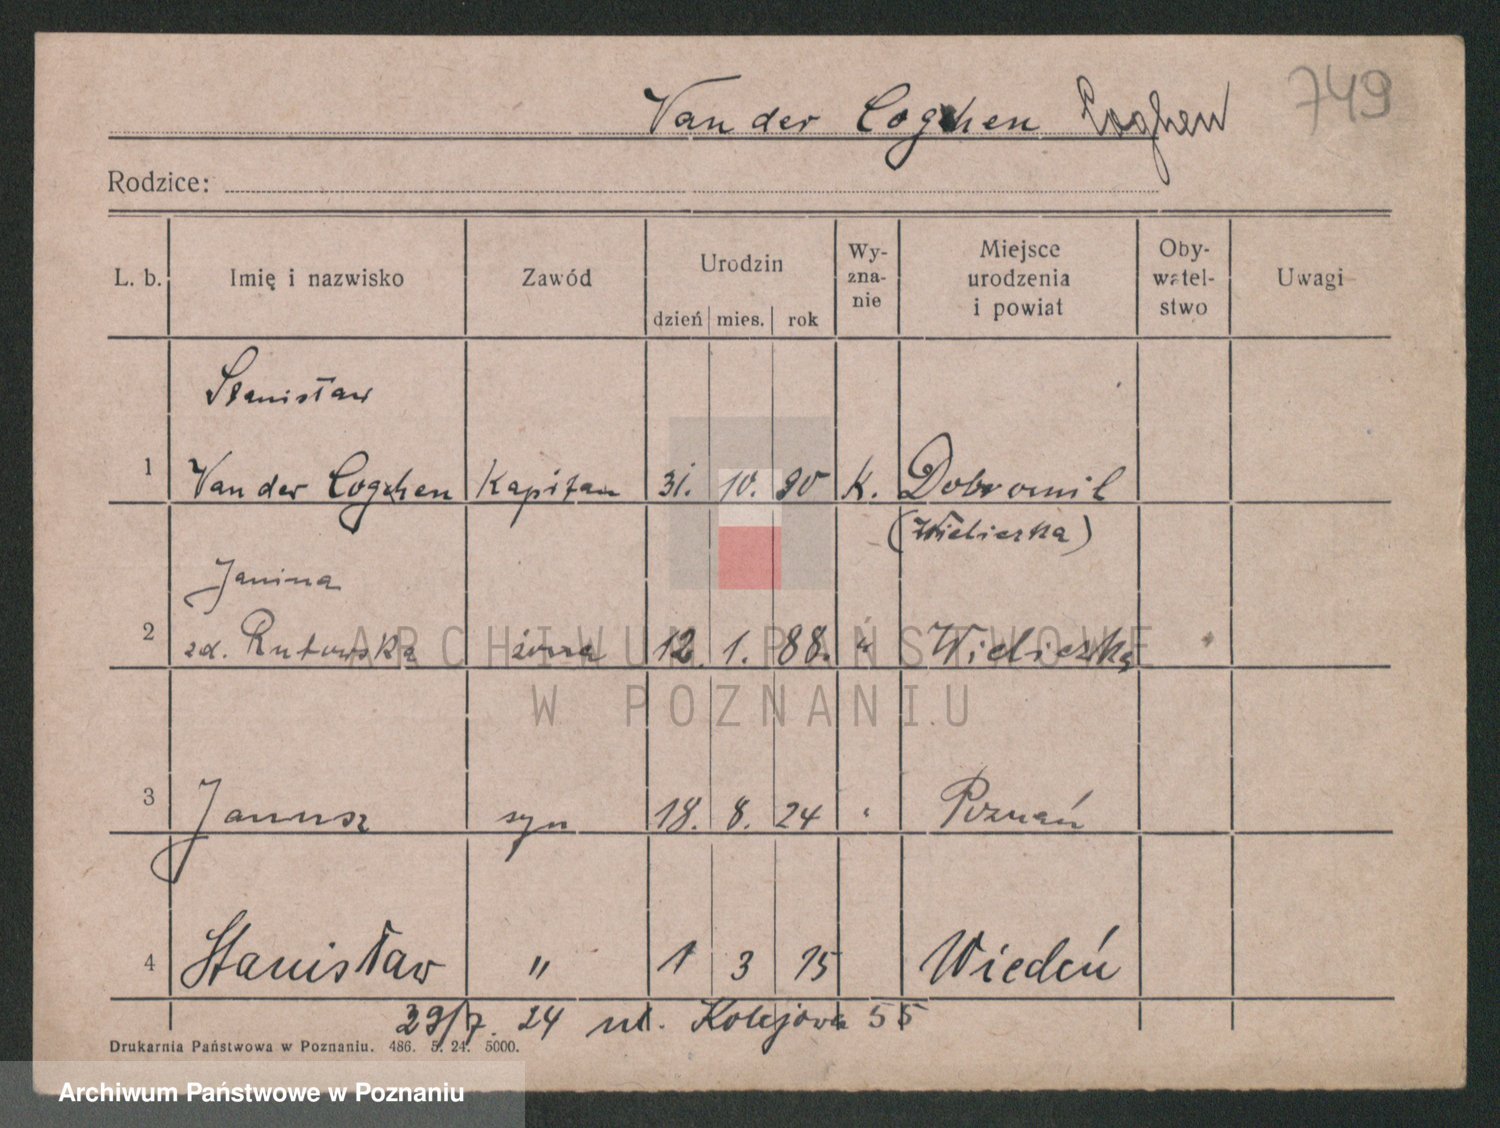 749
Van der Cogchen Coghen
Rodzice:
L. b. Imię i nazwisko Zawód Urodzin dzień mies. rok Wy-zna-nie Miejsce urodzenia i powiat Oby-watel-stwo Uwagi
Stanisław
1 Van der Cogchen Kapitan 31. 10. 90 k. Dobromil
(Wieliczka)
Janina
2 zd. Rutowska żona 12. 1. 88. " Wieliczka
3 Janusz syn 18. 8. 24 " Poznań
4 Stanisław " 1 3 15 Wiedeń
29/7. 24 ul. Kolejowa 55
Drukarnia Państwowa w Poznaniu. 486. 5. 24. 5000.
ARCHIWUM PAŃSTWOWE
W POZNANIU
Archiwum Państwowe w Poznaniu